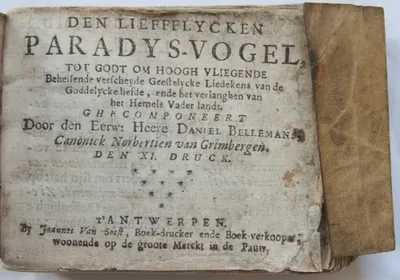 DEN LIEFFFLYCKEN
PARADYS-VOGEL,
TOT GODT OM HOOGH VLIEGENDE
Behelsende verscheyde Geestelycke Liedekens van de
Goddelycke liefde, ende het verlanghen van
het Hemels Vader landt.
GHECOMPONEERT
Door den Eerw: Heere DANIEL BELLEMANS
Canonick Norbertien van Grimbergen.
DEN XI. DRUCK.
T'ANTWERPEN.
By Joannes Van Soest, Boek-drucker ende Boek-verkooper,
woonende op de groote Merckt in de Pauw,